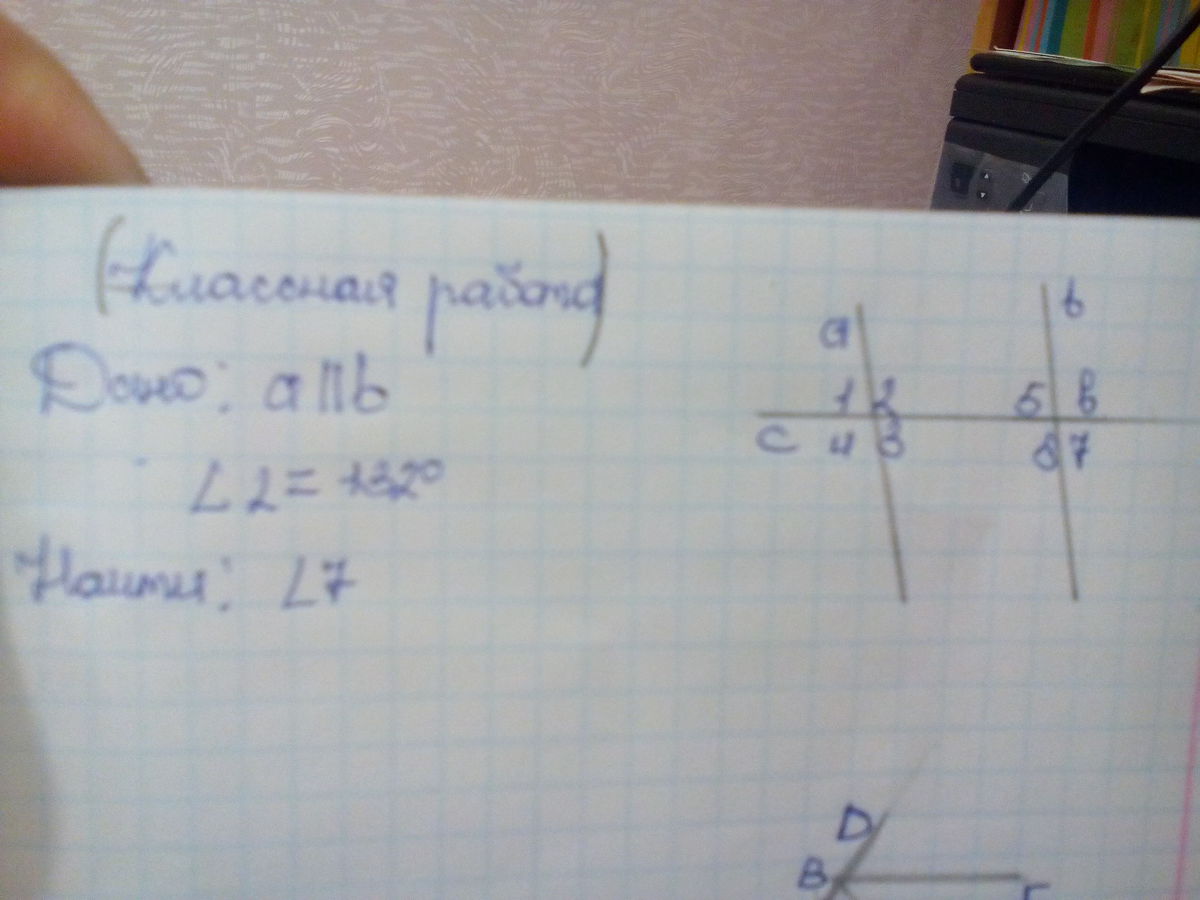 (Классная работа)
Дано: a||b
∠2 = 132°
Найти: ∠7
a
b
1 2
5 6
c 4 3
8 7
D
B